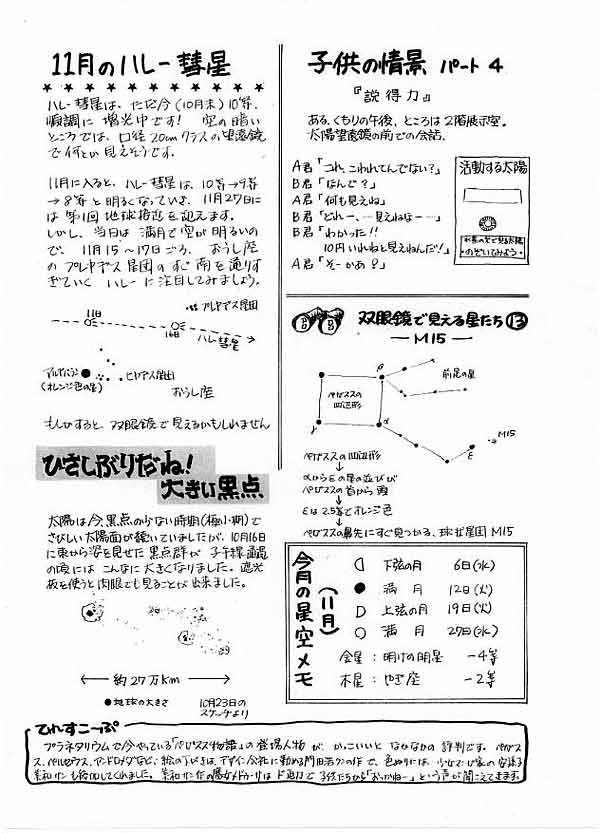 11月のハレー彗星
ハレー彗星は、ただ今(10月末)10等、
順調に増光中です! 空の暗い
ところでは、口径20cmクラスの望遠鏡
で何とか見えそうです。
11月に入ると、ハレー彗星は、10等→9等
→8等と明るくなっていき、11月27日に
は第1回地球接近を迎えます。
しかし、当日は満月で空が明るいの
で、11月15〜17日ごろ、おうし座
のプレヤデス星団のすぐ南を通りす
ぎていくハレーに注目してみましょう。
プレヤデス星団
11日
16日
ハレー彗星
アルデバラン
(オレンジ色の星)
ヒヤデス星団
おうし座
もしかすると、双眼鏡で見えるかもしれません
ひさしぶりだね!
大きい黒点
太陽は今、黒点の少ない時期(極小期)で
さびしい太陽面が続いていましたが、10月16日
に東から姿を見せた黒点群が子午線通過
の頃にはこんなに大きくなりました。遮光
板を使うと肉眼でも見ることが出来ました。
約27万km
●地球の大きさ
10月23日の
スケッチより
子供の情景 パート4
『説得力』
ある、くもりの午後、ところは2階展示室。
太陽望遠鏡の前での会話。
A君「コれ、こわれてんでない?」
B君「なんで?」
A君「何も見えね」
B君「どれー、…見えねなー…」
B君「わかった!!
10円いれねと見えねんだ!」
A君「そーかあ?」
活動する太陽
水素の光で見る太陽
のぞいてみよう。
双眼鏡で見える星たち⑬
―M15―
β
前足の星
ペガススの
四辺形
γ
α
ε
M15
ペガススの四辺形
↓
αからεの星の並びが
ペガススの首から頭
↓
εは2.5等でオレンジ色
↓
ペガススの鼻先にすぐ見つかる、球状星団M15
今月の星空メモ
(11月)
下弦の月 6日(水)
● 満月 12日(火)
上弦の月 19日(火)
○ 満月 27日(水)
金星:明けの明星 −4等
木星:やぎ座 −2等
てれすこーぷ
プラネタリウムで今やっている「ペガスス物語」の登場人物が、かっこいいとなかなかの評判です。ペガス
ス、ペルセウス、アンドロメダなど、絵の下がきは、デザイン会社に勤める門田
の作で、色ぬりには、少女
美和さんも
してくれました。美和さん作の魔女メドゥーサはド迫力で子供たちから「おっかねー」という声が聞こえてきます。